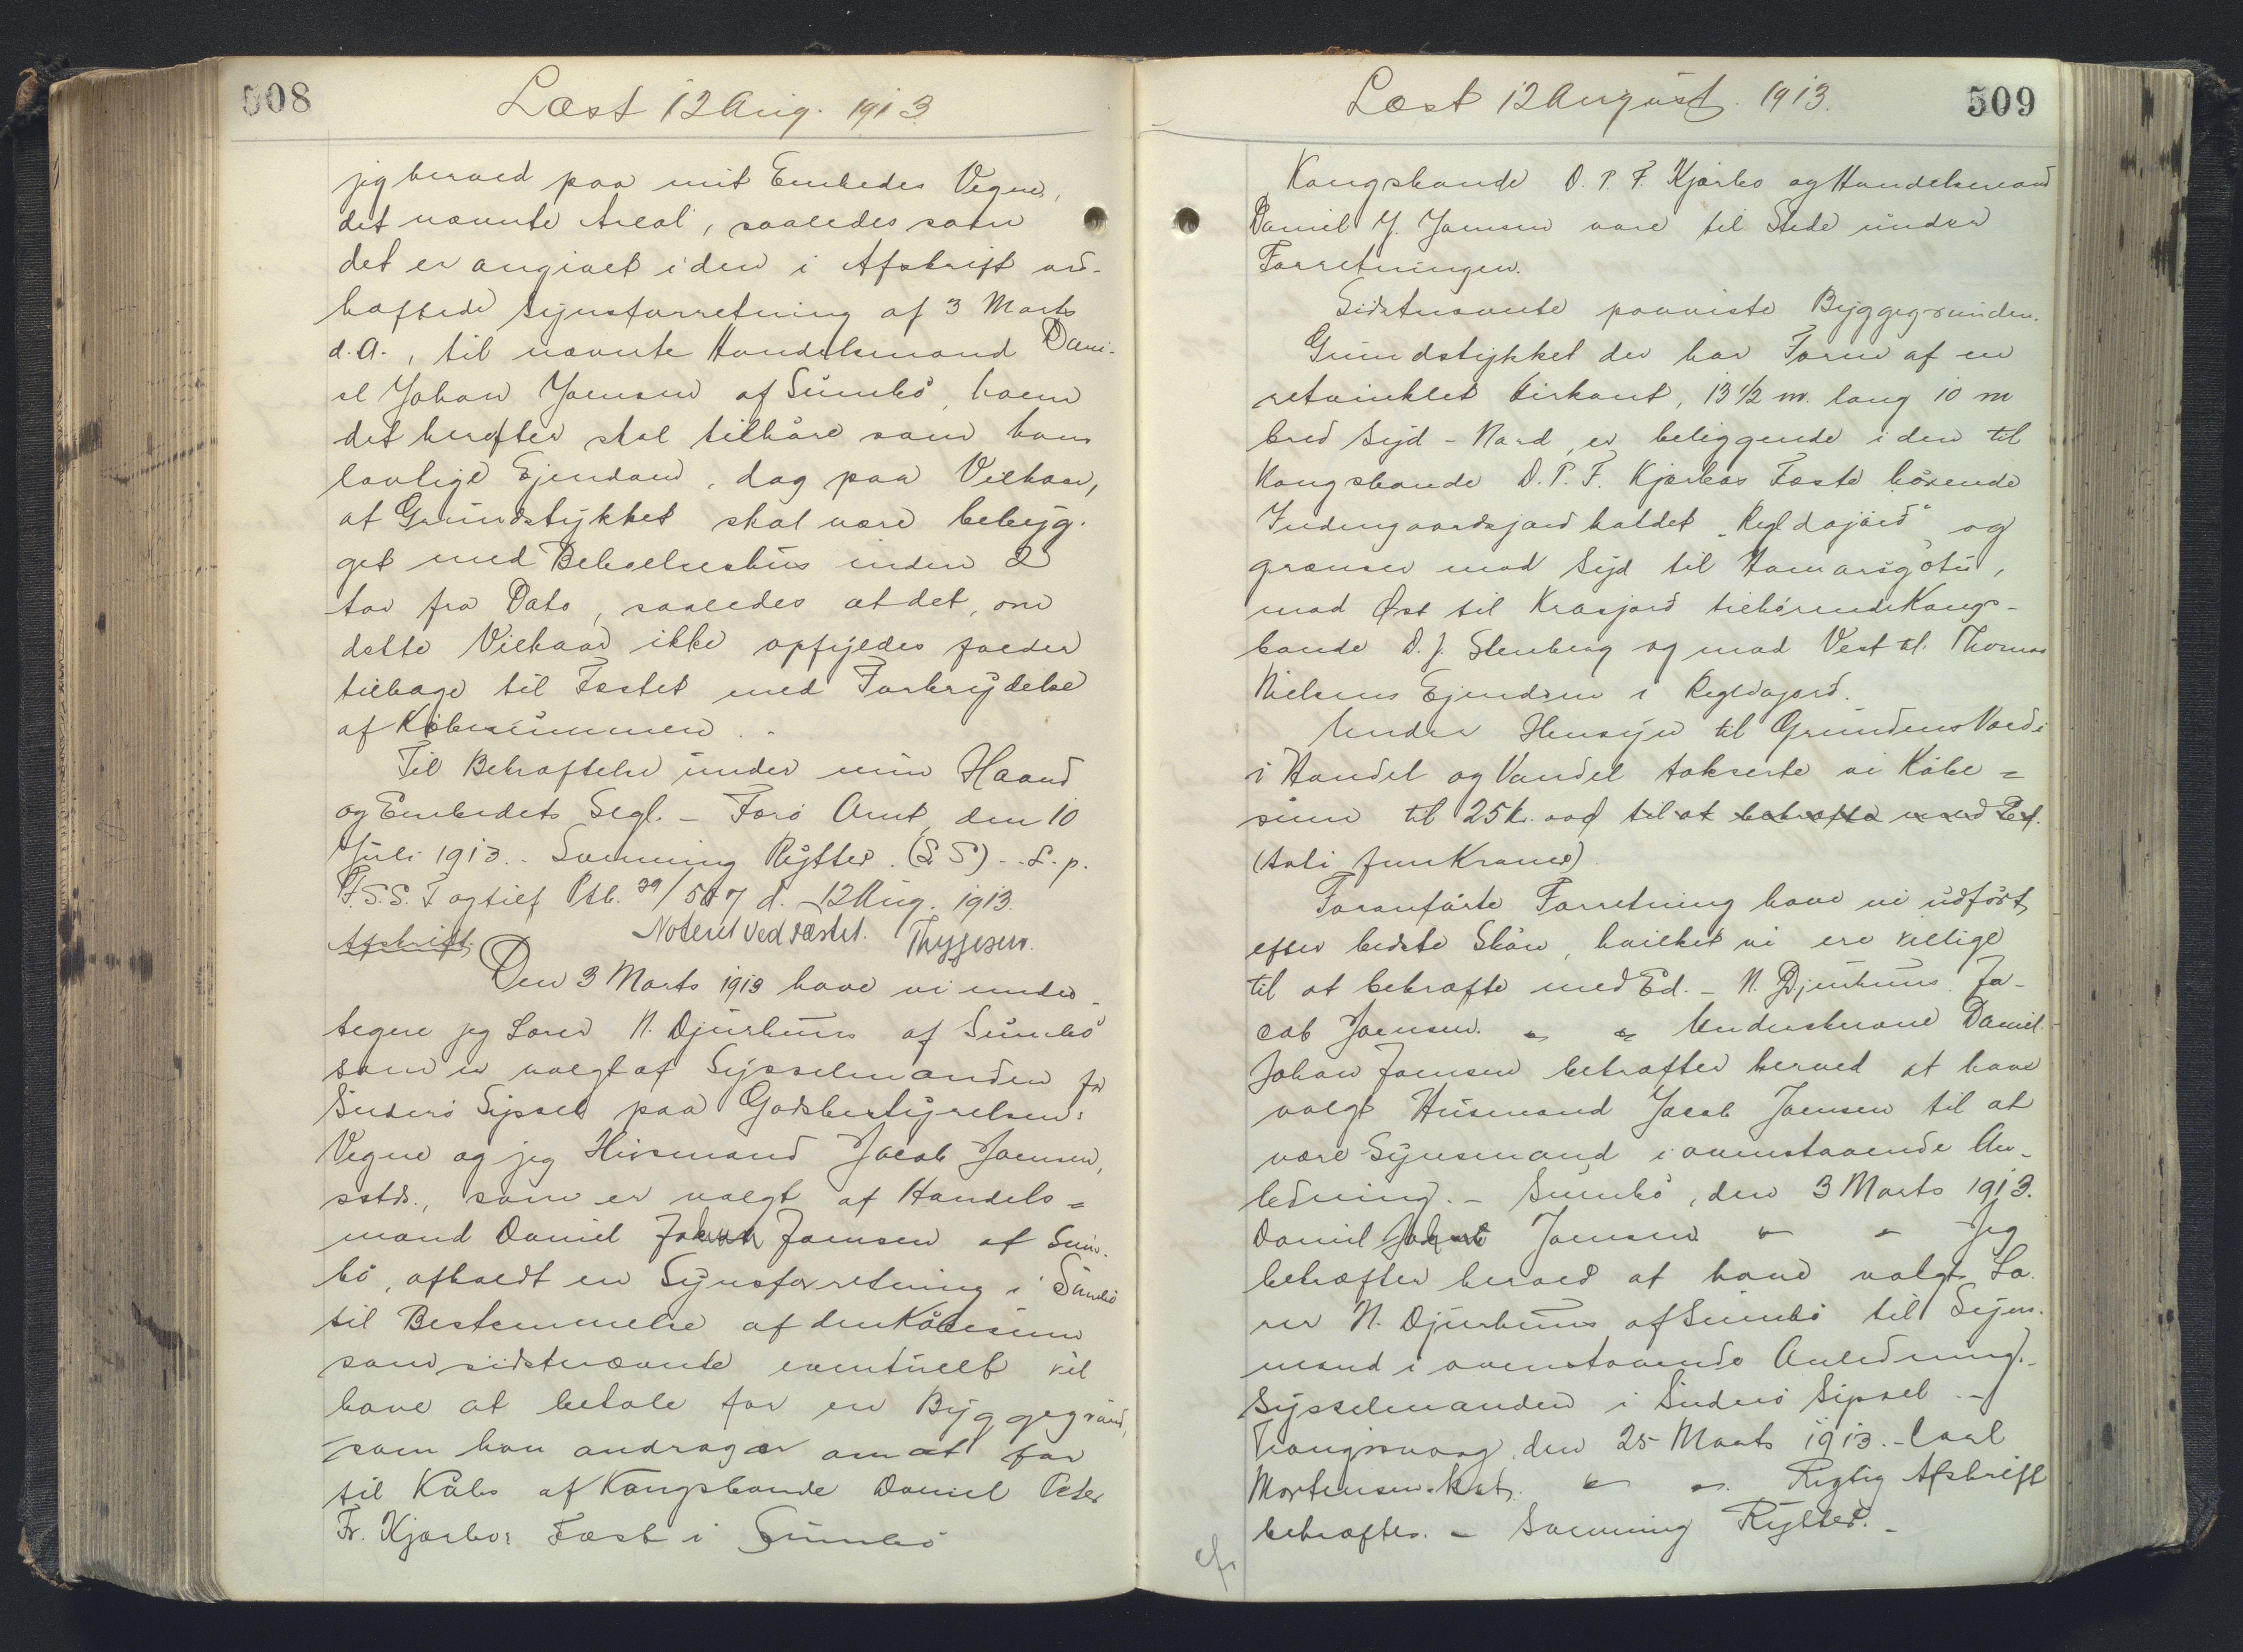 508
Læst 12 Aug. 1913
jeg herved paa mit Embedes Vegne,
det nævnte Areal, saaledes som
det er angivet i den i Afskrift ved-
hæftede Synsforretning af 3 Marts
d.A., til nævnte Handelsmand Dani-
el Johan Joensen af Sumbö, hvem
det herefter skal tilhöre som hans
lovlige Ejendom, dog paa Vilkaar,
at Grundstykket skal være bebyg-
get med Beboelseshus inden 2
Aar fra Dato, saaledes at det, om
dette Vilkaar ikke opfyldes falder
tilbage til Fæstet med Forbrydelse
af Köbesummen.
Til Bekræftelse under min Haand
og Embedets Segl. - Færö Amt, den 10
Juli 1913. - Svenning Rytter. (L.S) - L.p.
F.S.S. T og tilf Ptb. 29/507 d. - 12 Aug. 1913.
Afskrift. Noteret ved Fæstet. Thygesen.
Den 3 Marts 1913 have vi under-
tegne jeg Lærer N. Djurhuus af Sumbö
som er valgt af Sysselmanden for
Suderö Syssel paa Godsbestyrelsens
Vegne og jeg Husmand Jacob Joensen,
sstds., som er valgt af Handels=
mand Daniel Johan Joensen af Sum-
bö, afholdt en Synsforretning i Sumbö
til Bestemmelse af den Köbesum
som sidstnævnte eventuelt vil
have at betale for en Byggegrund,
som han andrager om at faa
til Købs af Kongsbonde Daniel Peter
Fr. Kjærbos Fæste i Sumbö
509
Læst 12 August 1913.
Kongsbonde D. P. F. Kjærbo og Handelsmand
Daniel J. Joensen vare til Stede under
Forretningen.
Sidstnævnte paaviste Byggegrunden.
Grundstykket der har Form af en
retvinklet Firkant, 13 1/2 m. lang 10 m
bred Syd - Nord, er beliggende i den til
Kongsbonde D. P. F. Kjærbos Fæste hörende
Indengaardsjord kaldet „Regldajörd" og
grænser mod Syd til Hamarsgötu,
mod Øst til Krasjord tilhörende Kongs-
bonde D. J. Stenberg og mod Vest til Thomas
Nielsens Ejendom i Regldajord.
Under Hensyn til Grundens Værdi
i Handel og Vandel takserte vi Købe=
sum til 25 kr. til at bekræfte med Ed.
(tolv fem Kroner)
Foranförte Forretning have vi udfört
efter bedste Skön, hvilket vi ere villige
til at bekræfte med Ed. - N. Djurhuus. Ja-
cob Joensen. " " Underskrevne Daniel
Johan Joensen bekræfter herved at have
valgt Husmand Jacob Joensen til at
være Synsmand i ovenstaaende An-
ledning. - Sumbö, den 3 Marts 1913.
Daniel Johan Joensen " " Jeg
bekræfter herved at have valgt Læ-
rer N. Djurhuus af Sumbö til Syns-
mand i ovenstaaende Anledning. -
Sysselmanden i Suderö Syssel. -
Trangisvaag, den 25 Marts 1913. - Carl
Mortensen. kst. " " Rigtig Afskrift
bekræftes. - Svenning Rytter. -
cfr